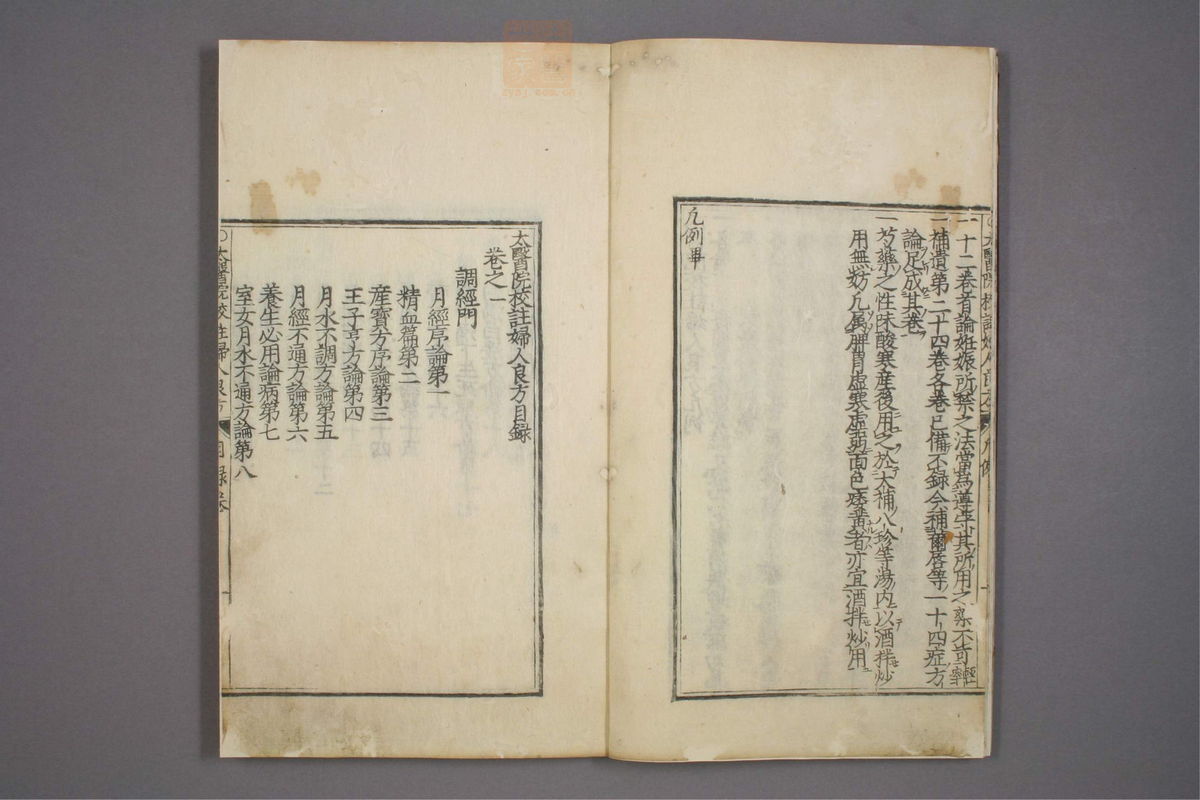 一十二卷首論妊娠所禁之法當爲遵守其所用之藥不可輕率
一補遺第二十四卷各卷已備不錄今補繭唇等一十四症方
論足成其卷
一芍藥之性味酸寒產後用之於大補八珍等湯內以酒拌炒
用無妨凡属脾胃虛寒虛弱面色痿黃者亦宜酒拌炒用
凡例畢
太醫院校註婦人良方目録
卷之一
調經門
月經序論第一
精血篇第二
産寶方序論第三
王子亨方論第四
月水不調方論第五
月經不通方論第六
養生必用論病第七
室女月水不通方論第八
○太醫院校註婦人良方 目録卷 一